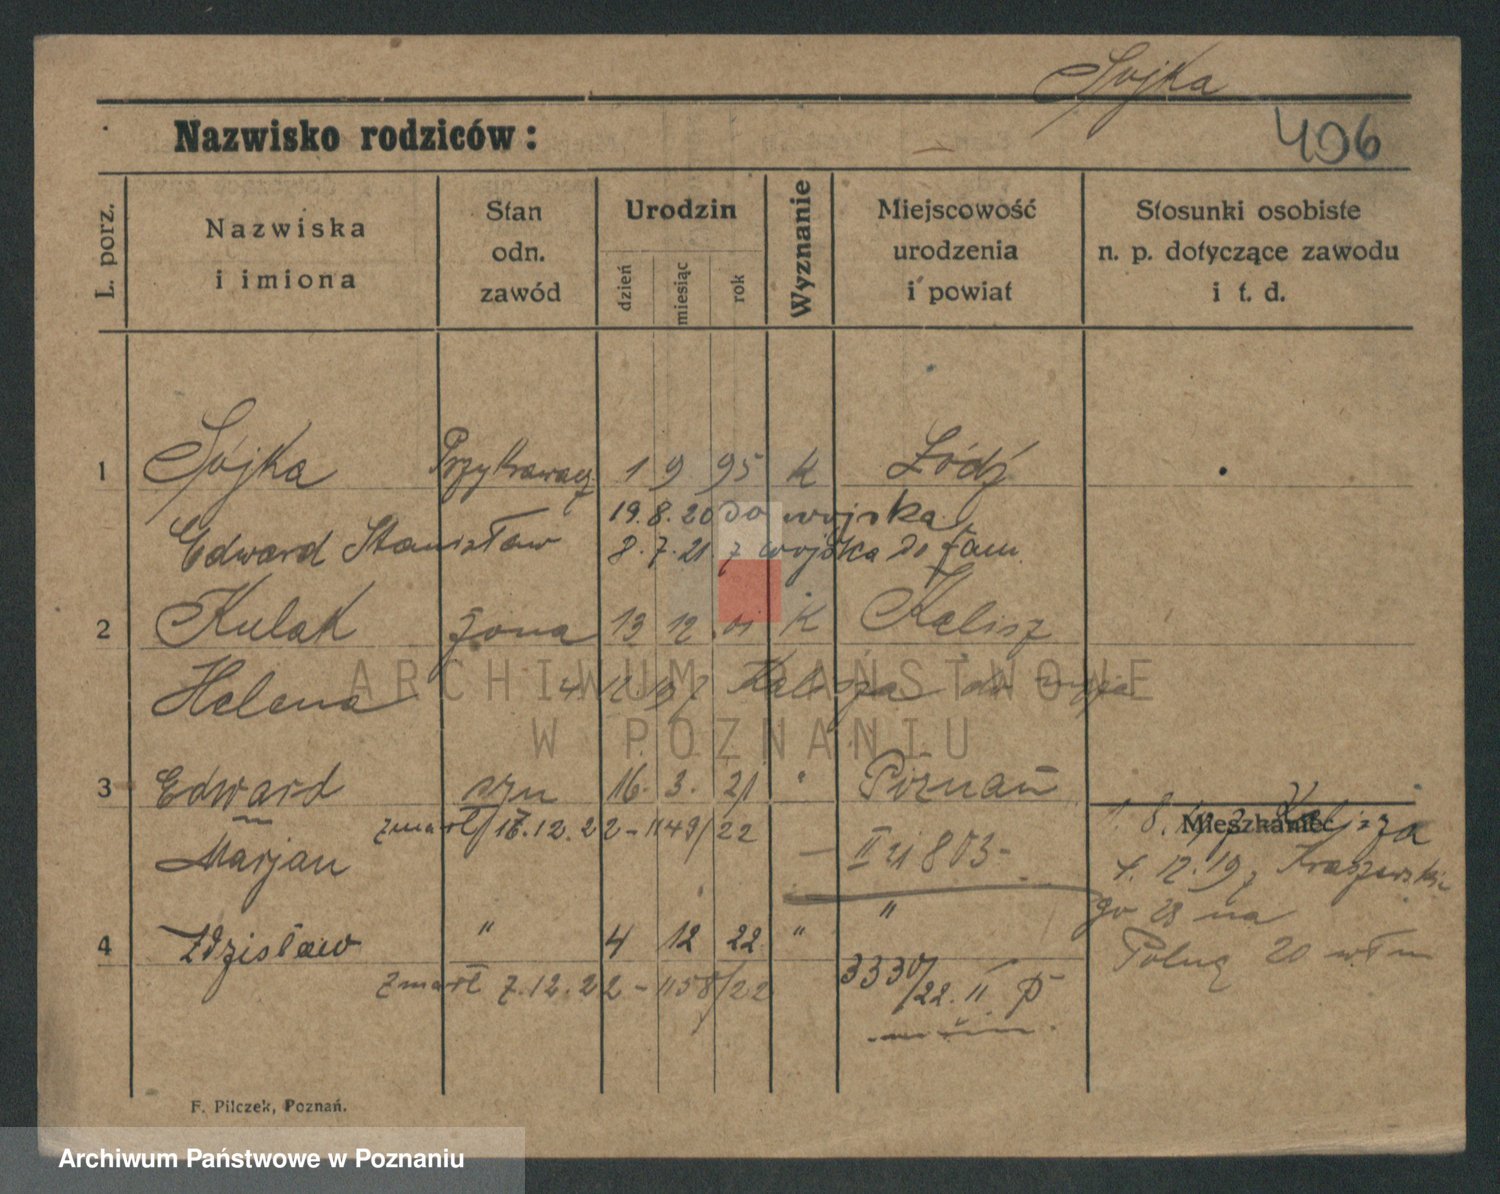 Sójka
Nazwisko rodziców:
406
L. porz.
Nazwiska
i imiona
Stan
odn.
zawód
Urodzin
dzień
miesiąc
rok
Wyznanie
Miejscowość
urodzenia
i powiat
Stosunki osobiste
n. p. dotyczące zawodu
i t. d.
1 Sójka Przykrawacz 1 9 95 k Łódź
19.8.20 do wojska
Edward Stanisław 8.7.21 z wojska do fam.
2 Kulak żona 13 12 01 k Kalisz
Helena 4 12 19 z Kalisza do męża
3 Edward syn 16. 3. 21 " Poznań
zmarł 16.12.22 - 1149/22
Marjan II 21 803 -
Mieszkaniec
1. 8. 19 z Kalisza
4. 12. 19 z Kraszewskie
go 28 na
Polną 20
4 Zdzisław " 4 12 22 " "
zmarł 7.12.22 - 1158/22 3330/22. II P
F. Pilczek, Poznań.
ARCHIWUM PAŃSTWOWE
W POZNANIU
Archiwum Państwowe w Poznaniu